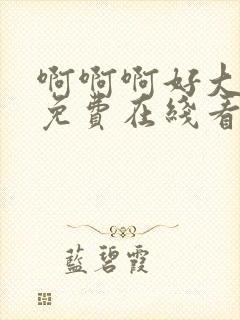 啊啊啊好大
免費在綫看
藍碧霞